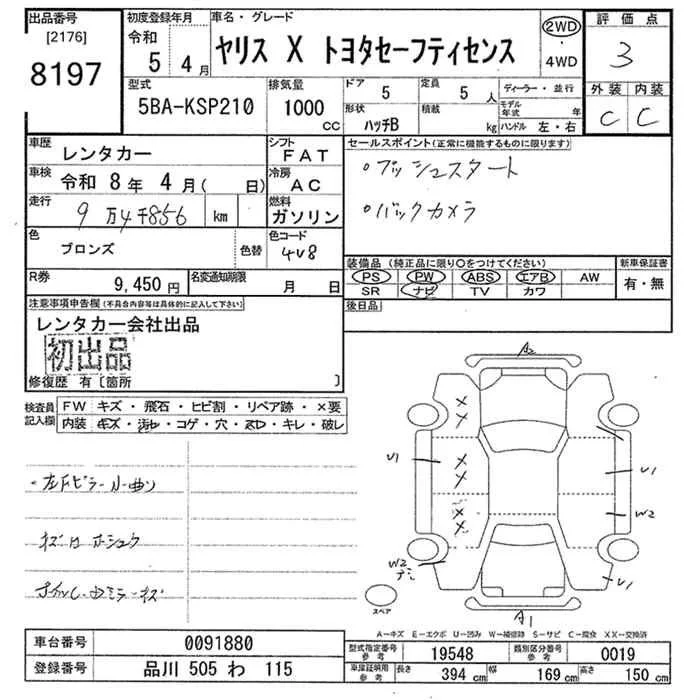 出品番号
[2176]
8197
初度登録年月
令和
5 4月
車名・グレード
ヤリス X トヨタセーフティセンス
2WD
・
4WD
評価点
3
外装 内装
C C
型式
5BA-KSP210
排気量
1000
CC
ドア 5
定員 5 人
形状 ハッチB
積載 kg
ディーラー・並行
モデル年式 年
ハンドル 左・右
車歴 レンタカー
シフト FAT
車検 令和 8年 4月( 日)
冷房 AC
走行 9万4千856 km
燃料 ガソリン
色 ブロンズ
色替
色コード 4V8
R券 9,450円
名変通知期限 月 日
セールスポイント(正常に機能するものに限ります)
○プッシュスタート
○バックカメラ
装備品(純正品に限り○をつけてください)
PS PW ABS エアB AW
SR ナビ TV カワ
新車保証書
有・無
後日品
注意事項申告欄(不具合内容等は具体的に記入して下さい)
レンタカー会社出品
初出品
修復歴 有〔箇所 〕
検査員記入欄
FW キズ・飛石・ヒビ割・リペア跡・×要
内装 キズ・汚レ・コゲ・穴・ヌレ・キレ・破レ
キズ ホシュウ
A2
U1
U1
W2
W2
U1
A1
スペア
A-キズ E-エクボ U-凹み W-補修跡 S-サビ C-腐食 XX-交換済
車台番号 0091880
登録番号 品川 505 わ 115
型式指定番号参考 19548
類別区分番号参考 0019
車庫証明用参考 長さ 394 cm 幅 169 cm 高さ 150 cm